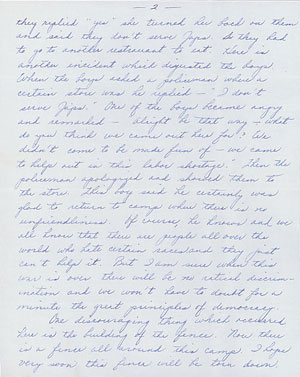 — 2 —
they replied "yes" she turned her back on them
and said they don't serve Japs. So they had
to go to another restaurant to eat. Here is
another incident which disgusted the boys.
When the boys asked a policeman where a
certain store was he replied – "I don't
serve Japs." One of the boys became angry
and remarked – alright be that way – what
do you think we came out here for? We
didn't come to be made fun of – we came
to help out in this labor shortage." Then the
policeman apologized and showed them to
the store. This boy said he certainly was
glad to return to camp where there is no
unfriendliness. Of course, he knows and we
all know that there are people all over this
world who hate certain races and they just
can't help it. But I am sure when this
war is over there will be no racial discrim-
ination and we won't have to doubt for a
minute the great principles of democracy.
One discouraging thing which occurred
here is the building of the fence. Now there
is a fence all around this camp. I hope
very soon this fence will be torn down.